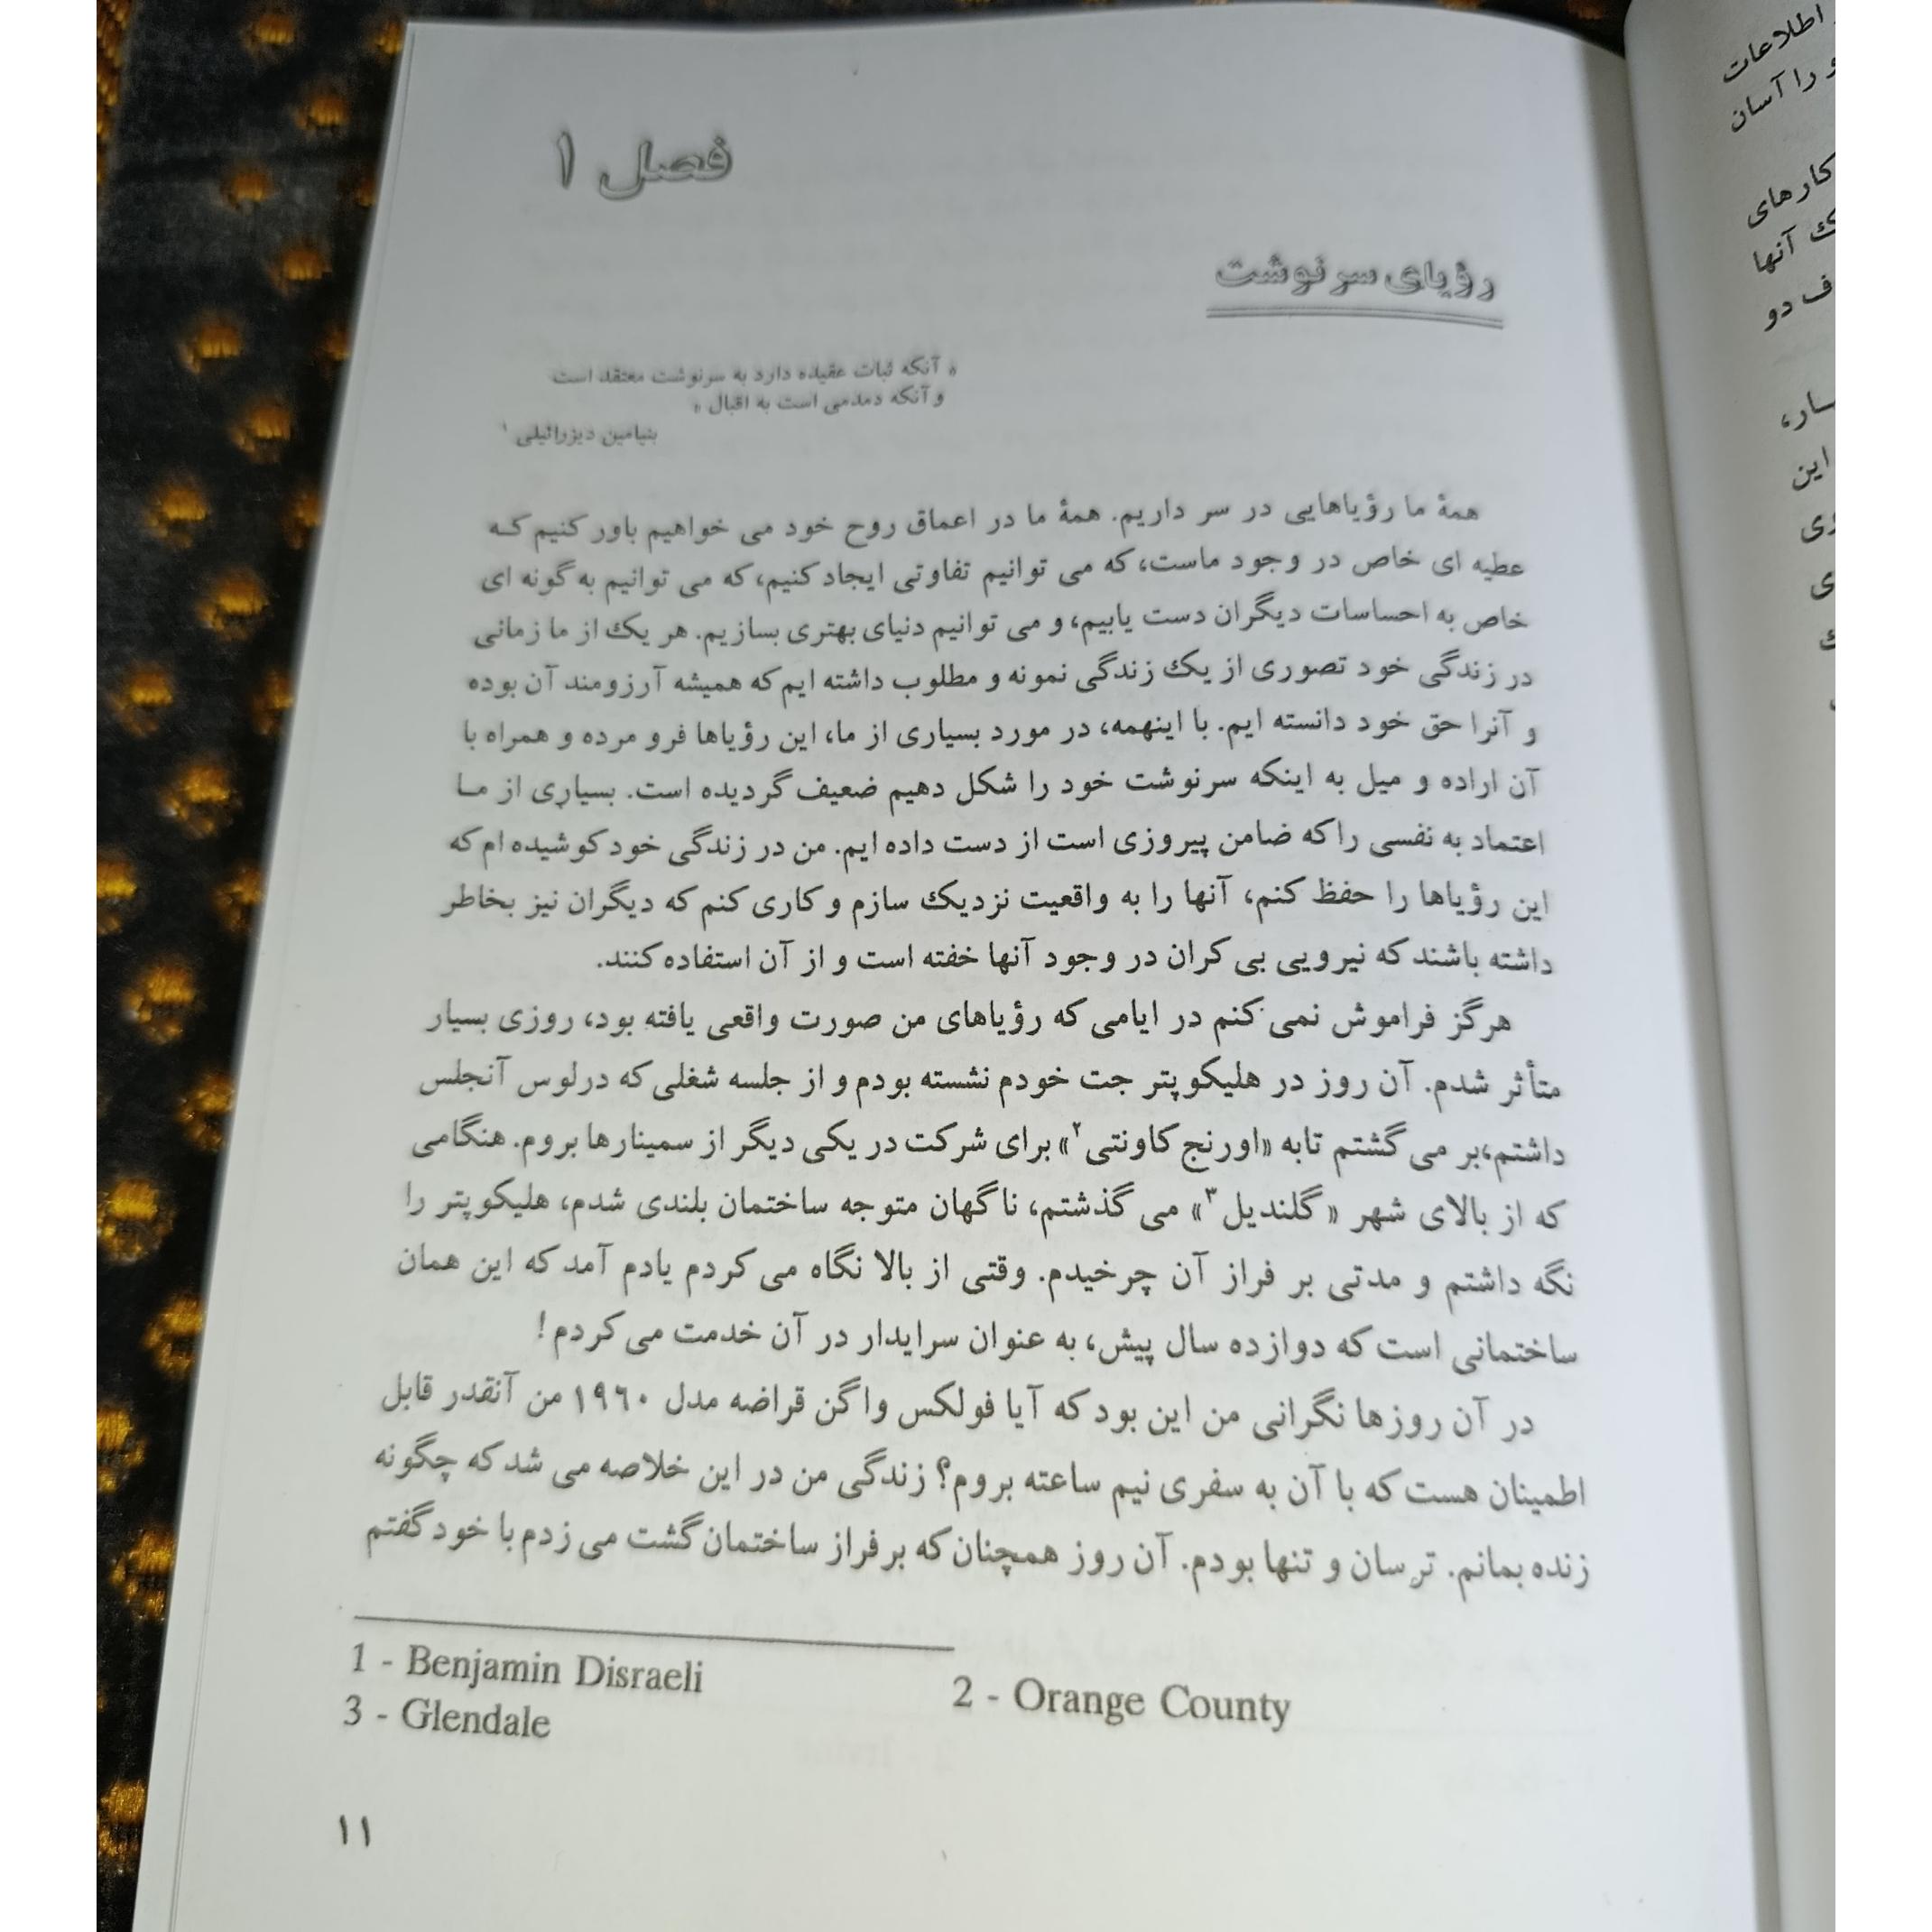 فصل ۱
رؤیای سرنوشت
« آنکه ثبات عقیده دارد به سرنوشت معتقد است
و آنکه دمدمی است به اقبال »
بنیامین دیزرائیلی ۱
همهٔ ما رؤیاهایی در سر داریم. همهٔ ما در اعماق روح خود می خواهیم باور کنیم که
عطیه ای خاص در وجود ماست، که می توانیم تفاوتی ایجاد کنیم، که می توانیم به گونه ای
خاص به احساسات دیگران دست یابیم، و می توانیم دنیای بهتری بسازیم. هر یک از ما زمانی
در زندگی خود تصوری از یک زندگی نمونه و مطلوب داشته ایم که همیشه آرزومند آن بوده
و آنرا حق خود دانسته ایم. با اینهمه، در مورد بسیاری از ما، این رؤیاها فرو مرده و همراه با
آن اراده و میل به اینکه سرنوشت خود را شکل دهیم ضعیف گردیده است. بسیاری از ما
اعتماد به نفسی را که ضامن پیروزی است از دست داده ایم. من در زندگی خود کوشیده ام که
این رؤیاها را حفظ کنم، آنها را به واقعیت نزدیک سازم و کاری کنم که دیگران نیز بخاطر
داشته باشند که نیرویی بی کران در وجود آنها خفته است و از آن استفاده کنند.
هرگز فراموش نمی کنم در ایامی که رؤیاهای من صورت واقعی یافته بود، روزی بسیار
متأثر شدم. آن روز در هلیکوپتر جت خودم نشسته بودم و از جلسه شغلی که درلوس آنجلس
داشتم،بر می گشتم تابه «اورنج کاونتی۲» برای شرکت در یکی دیگر از سمینارها بروم. هنگامی
که از بالای شهر « گلندیل۳» می گذشتم، ناگهان متوجه ساختمان بلندی شدم، هلیکوپتر را
نگه داشتم و مدتی بر فراز آن چرخیدم. وقتی از بالا نگاه می کردم یادم آمد که این همان
ساختمانی است که دوازده سال پیش، به عنوان سرایدار در آن خدمت می کردم!
در آن روزها نگرانی من این بود که آیا فولکس واگن قراضه مدل ۱۹٦۰ من آنقدر قابل
اطمینان هست که با آن به سفری نیم ساعته بروم؟ زندگی من در این خلاصه می شد که چگونه
زنده بمانم. ترسان و تنها بودم. آن روز همچنان که بر فراز ساختمان گشت می زدم با خود گفتم
1 - Benjamin Disraeli
2 - Orange County
3 - Glendale
۱۱
اطلاعات
را آسان
کارهای
آنها
ف دو
سار،
این